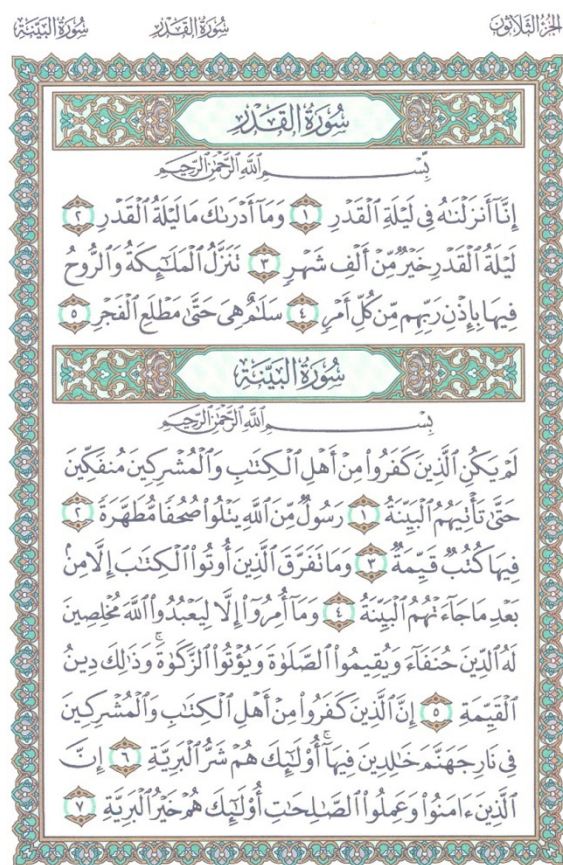 الجزء الثلاثون
سورة القدر
سورة البينة
سُورَةُ القَدْرِ
بِسْمِ ٱللَّهِ ٱلرَّحْمَٰنِ ٱلرَّحِيمِ
إِنَّآ أَنزَلْنَٰهُ فِى لَيْلَةِ ٱلْقَدْرِ ١ وَمَآ أَدْرَىٰكَ مَا لَيْلَةُ ٱلْقَدْرِ ٢
لَيْلَةُ ٱلْقَدْرِ خَيْرٌ مِّنْ أَلْفِ شَهْرٍ ٣ تَنَزَّلُ ٱلْمَلَٰٓئِكَةُ وَٱلرُّوحُ
فِيهَا بِإِذْنِ رَبِّهِم مِّن كُلِّ أَمْرٍ ٤ سَلَٰمٌ هِىَ حَتَّىٰ مَطْلَعِ ٱلْفَجْرِ ٥
سُورَةُ البَيِّنَةِ
بِسْمِ ٱللَّهِ ٱلرَّحْمَٰنِ ٱلرَّحِيمِ
لَمْ يَكُنِ ٱلَّذِينَ كَفَرُوا۟ مِنْ أَهْلِ ٱلْكِتَٰبِ وَٱلْمُشْرِكِينَ مُنفَكِّينَ
حَتَّىٰ تَأْتِيَهُمُ ٱلْبَيِّنَةُ ١ رَسُولٌ مِّنَ ٱللَّهِ يَتْلُوا۟ صُحُفًا مُّطَهَّرَةً ٢
فِيهَا كُتُبٌ قَيِّمَةٌ ٣ وَمَا تَفَرَّقَ ٱلَّذِينَ أُوتُوا۟ ٱلْكِتَٰبَ إِلَّا مِنۢ
بَعْدِ مَا جَآءَتْهُمُ ٱلْبَيِّنَةُ ٤ وَمَآ أُمِرُوٓا۟ إِلَّا لِيَعْبُدُوا۟ ٱللَّهَ مُخْلِصِينَ
لَهُ ٱلدِّينَ حُنَفَآءَ وَيُقِيمُوا۟ ٱلصَّلَوٰةَ وَيُؤْتُوا۟ ٱلزَّكَوٰةَ ۚ وَذَٰلِكَ دِينُ
ٱلْقَيِّمَةِ ٥ إِنَّ ٱلَّذِينَ كَفَرُوا۟ مِنْ أَهْلِ ٱلْكِتَٰبِ وَٱلْمُشْرِكِينَ
فِى نَارِ جَهَنَّمَ خَٰلِدِينَ فِيهَآ ۚ أُو۟لَٰٓئِكَ هُمْ شَرُّ ٱلْبَرِيَّةِ ٦ إِنَّ
ٱلَّذِينَ ءَامَنُوا۟ وَعَمِلُوا۟ ٱلصَّٰلِحَٰتِ أُو۟لَٰٓئِكَ هُمْ خَيْرُ ٱلْبَرِيَّةِ ٧